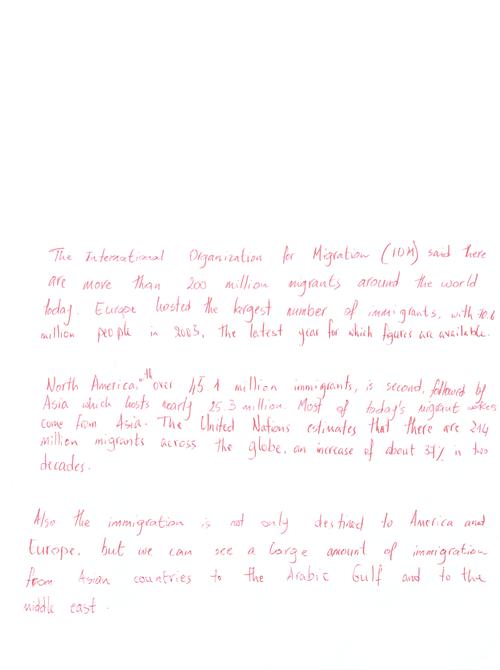 The International Organization for Migration (IOM) said there
are more than 200 million migrants around the world
today. Europe hosted the largest number of immigrants, with 70.6
million people in 2005, the latest year for which figures are available.
North America, with over 45.1 million immigrants, is second, followed by
Asia which hosts nearly 25.3 million. Most of today's migrant workers
come from Asia. The United Nations estimates that there are 214
million migrants across the globe, an increase of about 37% in two
decades.
Also the immigration is not only destined to America and
Europe, but we can see a large amount of immigration
from Asian countries to the Arabic Gulf and to the
middle east.